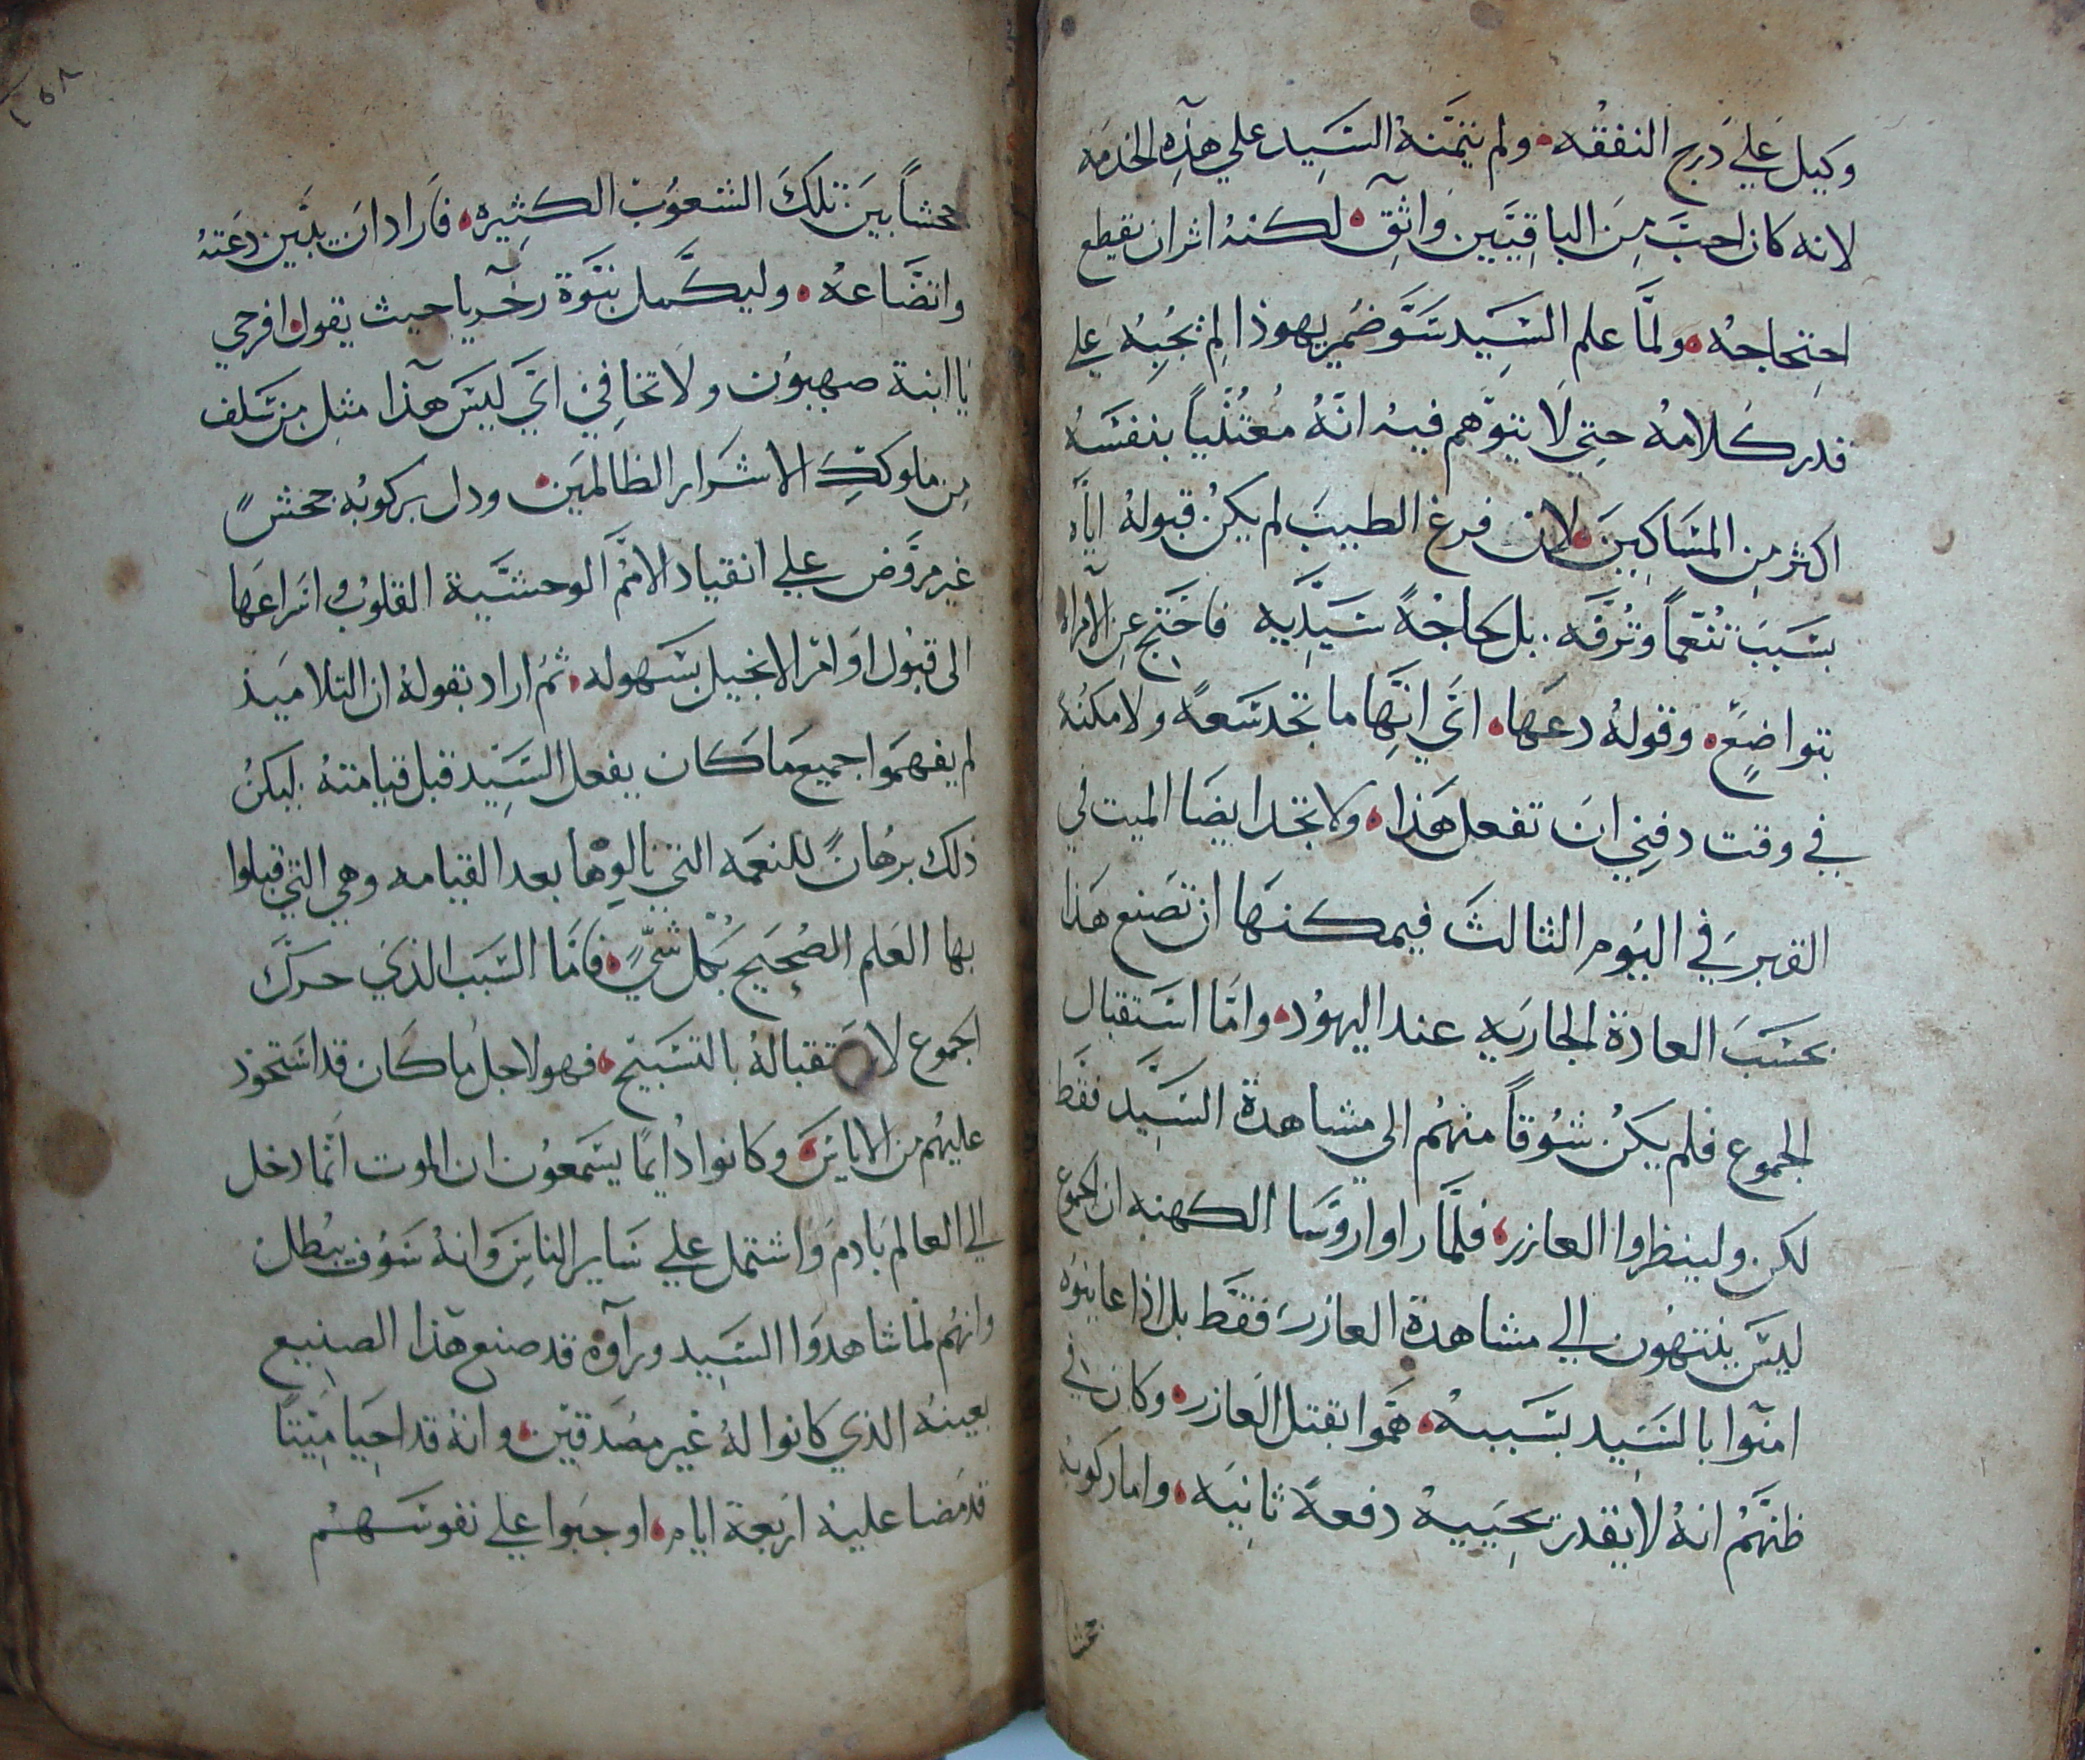 وكيل علي درج النفقه ولم يتمنه السَيد علي هذه الخدمه
لانه كان احبَّ مِن الباقيَّين واثقِ لكنهُ اثر ان يقطع
احتجاجهُ ولمَّا علم السَيد سَوَّ ضمير يهوذا لم يجُبِهُ علي
قدر كلامهُ حتِي لا يتوَّهم فيهُ انَّهُ مُعتُنياً بنفسَهُ
اكثر مِن المسَاكِينَ لان فرغ الطبيبَ لم يكنُ قبولهُ اياَّه
بسَببَ تنُعّماً وترُفَّه بل لحاجْةً سَيَدِّيه فاحَتج عِن الآمراه
بتواضِعٍ وقولهُ دعَها ايَّ انهَّا ما تجد سَعةً ولا مكنُهً
في وقت دفنِي انَ تفعل هَذا ولا تجد ايضَا الميت في
القبرَ في اليَوم الثالثَ فيمكنهَا ان تصَنع هَذا
بحسَبَ العادة الجاريَه عند اليهوُد وامَّا اسَتقبال
الجموع فلم يكَنُ شوُقاً منهُم الي مشاهدة السَيِّد فقَط
لكن ولينظروا العازر فلمَّا راوا اروُسَا الكهنه ان الجموع
ليسَّ ينتهون الي مشاهدة العازرَ فقَط بل اذا عاينوُه
امنوا بالسَيد بسَببهُ همَّوا بقتل العَازر وكان في
ظنهَّمُ انهُ لا يقدر يحِييهُ دفعةً ثانيَه واما ركوبهُ
جحشا
٢٥٨
جحشاً بينَ تلكَ الشعوُب الكثِيره فاَراد انَ يبيَّن دعَتهُ
واتضَّاعهُ وليكمَّل نبَّوة زخَريا حيث يقول افرحي
يا ابنة صهيوُن ولا تخافِيَ ايَّ ليسَ هَذا مثل مِن سَلف
مِن ملوككِ الاشرَار الظالميَن ودل بركوبُه جحشً
غير مروَّض علي انقياد الامُم الوحشيَّة القلوُب واسَراعَها
الى قبُول اوَامر الانجيل بسَهوله ثمُ اراد بقولهُ ان التلاميَذ
لم يفهمَوا جميع مَا كان يفعل السَيِّد قبل قيامتهُ ليكنُ
ذلك برُهانً للنعمَه التي نالوُها بعد القيامه وهي التي قبلوا
بها العَلم الصُحيَح بكُل شيٍّ فامَّا السَبَب الذيَ حرَكَّ
الجموع لاسَتقبالهُ بالتسَبيَح فهو لاجل ما كان قد اسَتحَوذ
عليهُم من الاياسَ وكانوا دُايمًا يسَمعوُن ان الموت انَّما دخل
الي العالم بَادم وَاشتمل علي سَاير الناسَ وَانهُ سَوُف يبُطل
وانهُم لماَّ شاهدوَا السَيد ورآوه قد صنع هَذا الصنيِع
بعينهُ الذي كانوا لهُ غير مصُدَقيَن وانهُ قد احيَا ميتًا
قد مَضا عليهُ ارَبعة ايام اوجبَوا علي نفوسَهُم